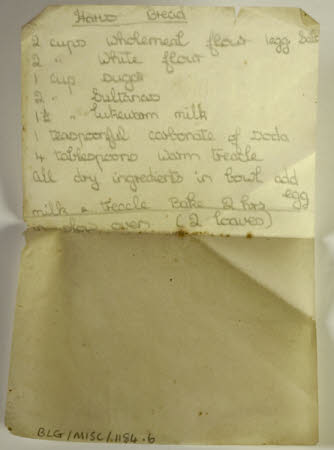 Bread
2 cups wholemeal flour 1 egg Salt
2 " white flour
1 cup sugar
2 " Sultanas
1½ " lukewarm milk
1 teaspoonful carbonate of soda
4 tablespoons warm treacle
All dry ingredients in bowl add
egg
milk & treacle Bake 2 hrs
in slow oven (2 loaves)
BLG/MISC/1184.6